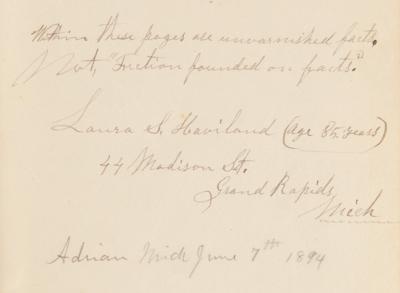 Within these pages are unvarnished facts,
Not, "Friction founded on facts."
Laura S. Haviland (Age 85 years)
44 Madison St.
Grand Rapids
Mich
Adrian Mich June 7th 1894